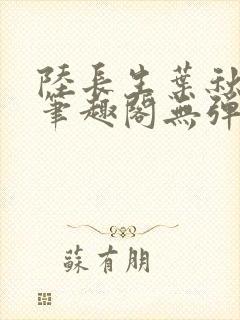 陸長生葉秋
筆趣閣無彈
蘇有朋